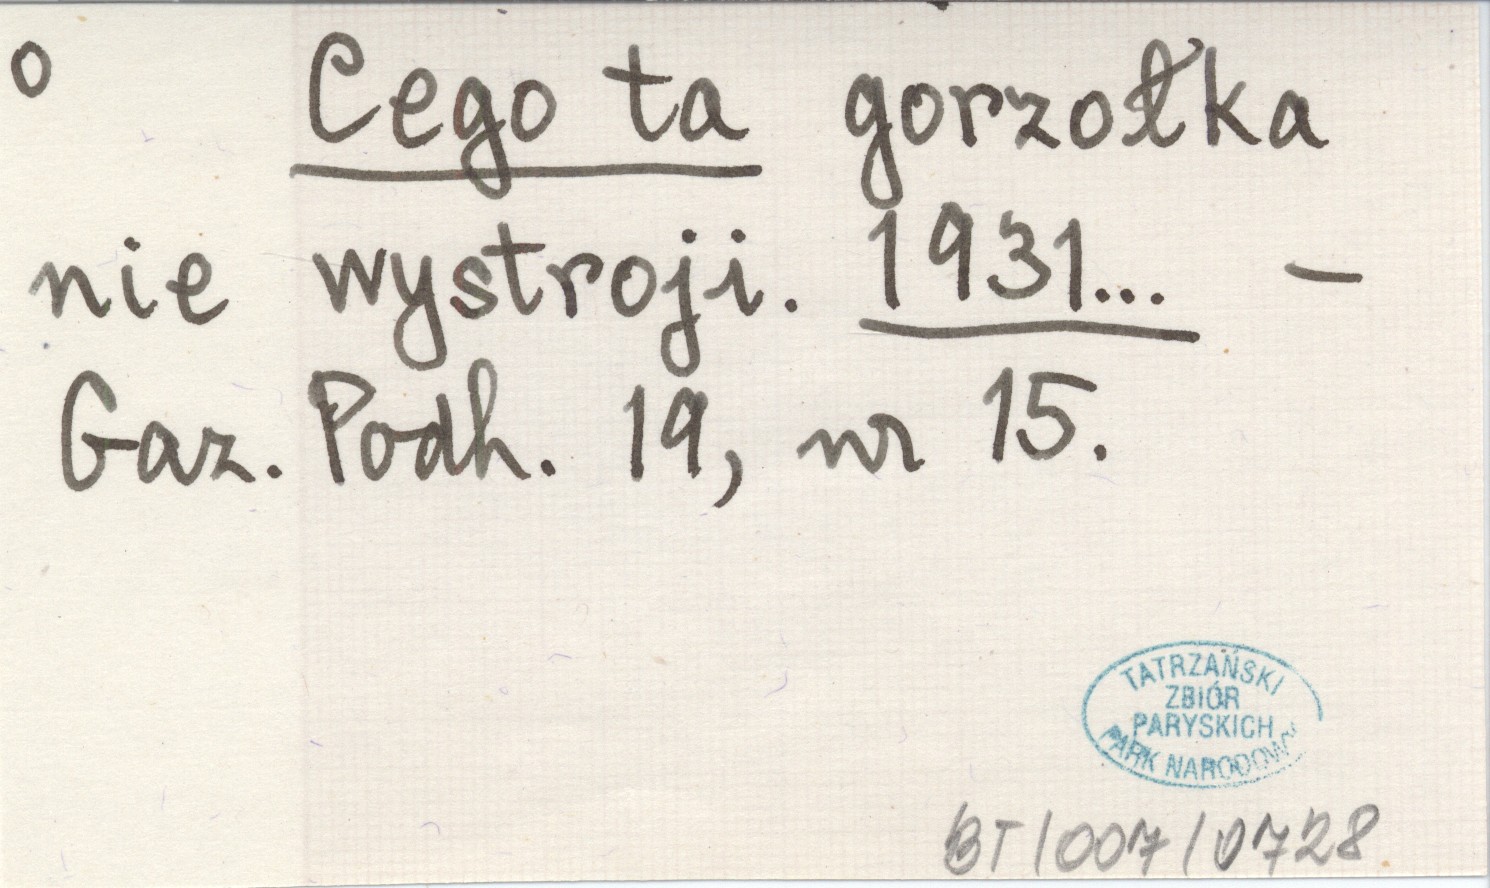 o Cego ta gorzołka
nie wystroji. 1931... –
Gaz. Podh. 19, nr 15.
TATRZAŃSKI
ZBIÓR
PARYSKICH
PARK NARODOWY
BT/007/0728